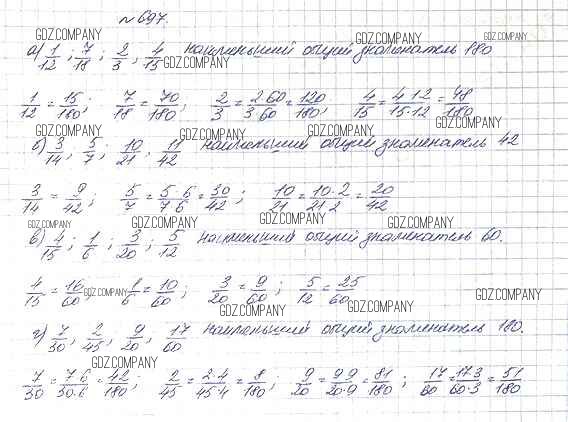 № 697.
GDZ.COMPANY GDZ.COMPANY GDZ.COMPANY
а) 1/12 ; 7/18 ; 2/3 , 4/15 наименьший общий знаменатель 180
GDZ.COMPANY
1/12 = 15/180; 7/18 = 70/180; 2/3 = 2 60/3 60 = 120/180; 4/15 = 4 12/15 12 = 48/180
GDZ.COMPANY GDZ.COMPANY GDZ.COMPANY GDZ.COMPANY
б) 3/14, 5/7; 10/21, 11/42 наименьший общий знаменатель 42
3/14 = 9/42; 5/7 = 5 6/7 6 = 30/42; 10/21 = 10·2/21 2 = 20/42
GDZ.COMPANY GDZ.COMPANY GDZ.COMPANY GDZ.COMPANY
в) 4/15; 1/6; 3/20; 5/12 наименьший общий знаменатель 60.
4/15 = 16/60, 1/6 = 10/60; 3/20 = 9/60; 5/12 = 25/60
GDZ.COMPANY GDZ.COMPANY GDZ.COMPANY GDZ.COMPANY
г) 7/30, 2/45; 9/20, 17/60 наименьший общий знаменатель 180.
GDZ.COMPANY
7/30 = 7 6/30·6 = 42/180; 2/45 = 2·4/45·4 = 8/180; 9/20 = 9 9/20·9 = 81/180; 17/60 = 17 3/60·3 = 51/180